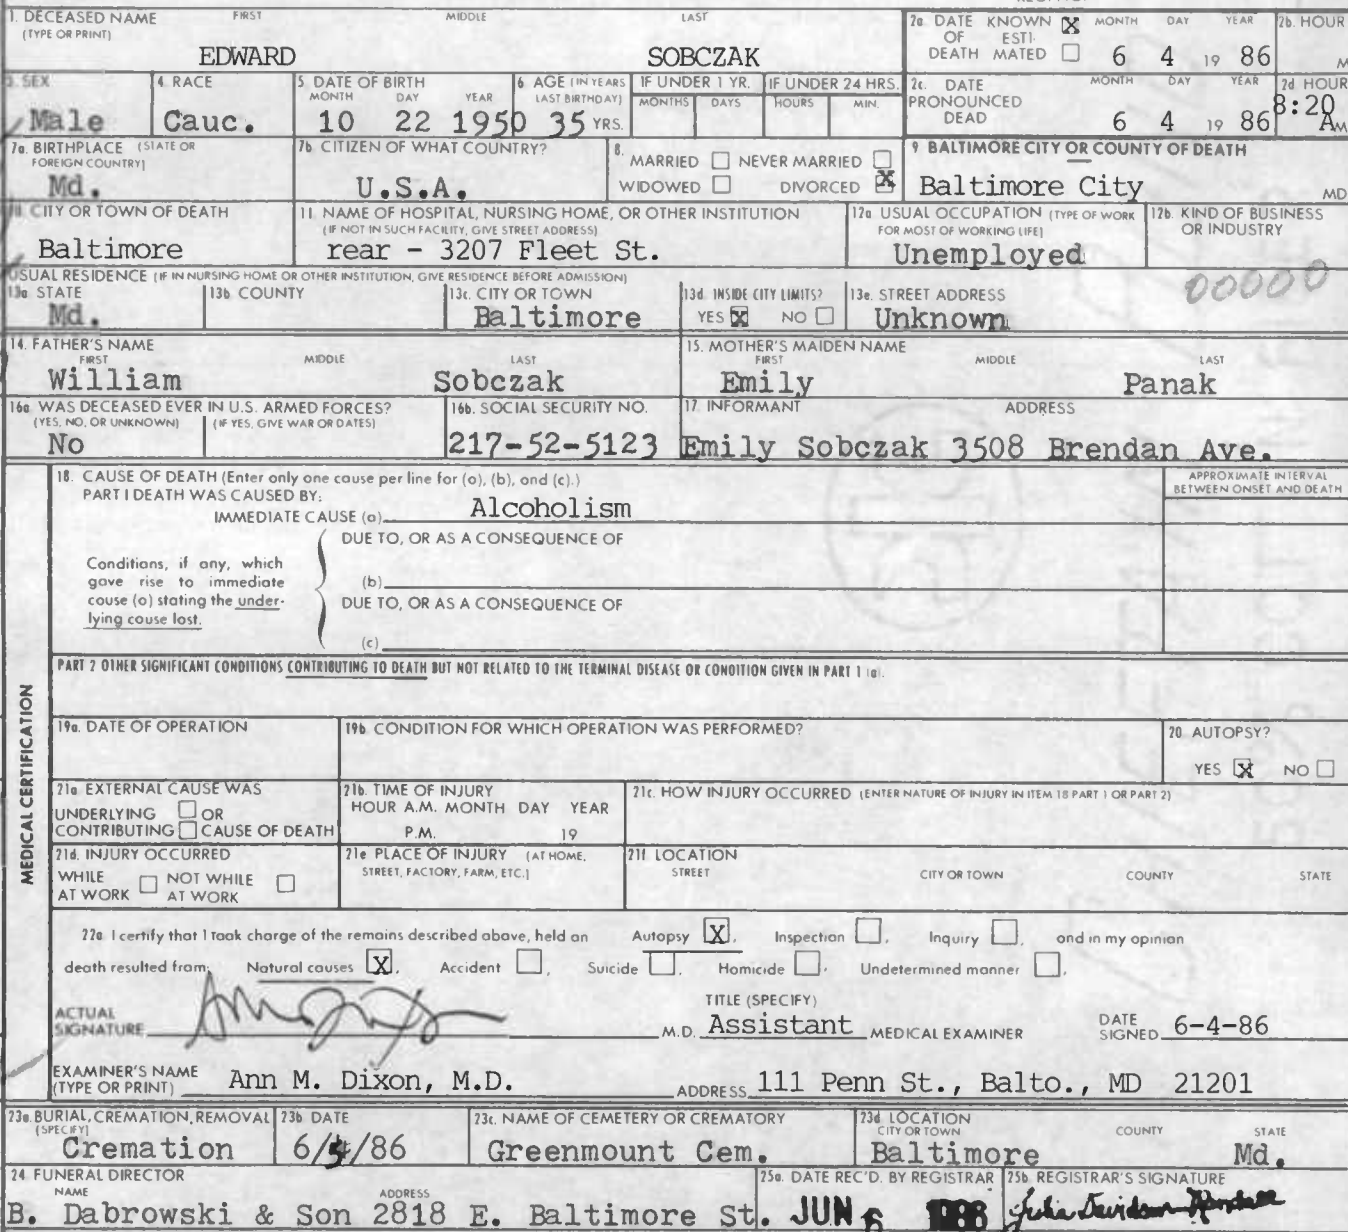 1. DECEASED NAME FIRST MIDDLE LAST
(TYPE OR PRINT)
EDWARD SOBCZAK
2a. DATE OF DEATH KNOWN X ESTIMATED MONTH DAY YEAR
6 4 19 86
2b. HOUR
M
3. SEX
Male
4. RACE
Cauc.
5. DATE OF BIRTH
MONTH DAY YEAR
10 22 1950
6. AGE (IN YEARS LAST BIRTHDAY)
35 YRS.
IF UNDER 1 YR.
MONTHS DAYS
IF UNDER 24 HRS.
HOURS MIN.
2c. DATE PRONOUNCED DEAD MONTH DAY YEAR
6 4 19 86
2d HOUR
8:20 A M
7a. BIRTHPLACE (STATE OR FOREIGN COUNTRY)
Md.
7b. CITIZEN OF WHAT COUNTRY?
U.S.A.
8.
MARRIED NEVER MARRIED
WIDOWED DIVORCED X
9 BALTIMORE CITY OR COUNTY OF DEATH
Baltimore City MD
10 CITY OR TOWN OF DEATH
Baltimore
11. NAME OF HOSPITAL, NURSING HOME, OR OTHER INSTITUTION
(IF NOT IN SUCH FACILITY, GIVE STREET ADDRESS)
rear - 3207 Fleet St.
12a USUAL OCCUPATION (TYPE OF WORK FOR MOST OF WORKING LIFE)
Unemployed
12b. KIND OF BUSINESS OR INDUSTRY
00000
USUAL RESIDENCE (IF IN NURSING HOME OR OTHER INSTITUTION, GIVE RESIDENCE BEFORE ADMISSION)
13a STATE
Md.
13b COUNTY
13c. CITY OR TOWN
Baltimore
13d INSIDE CITY LIMITS?
YES X NO
13e. STREET ADDRESS
Unknown
14. FATHER'S NAME
FIRST MIDDLE LAST
William Sobczak
15. MOTHER'S MAIDEN NAME
FIRST MIDDLE LAST
Emily Panak
16a WAS DECEASED EVER IN U.S. ARMED FORCES?
(YES, NO, OR UNKNOWN) (IF YES, GIVE WAR OR DATES)
No
16b. SOCIAL SECURITY NO.
217-52-5123
17 INFORMANT ADDRESS
Emily Sobczak 3508 Brendan Ave.
MEDICAL CERTIFICATION
18. CAUSE OF DEATH (Enter only one cause per line for (a), (b), and (c).)
PART I DEATH WAS CAUSED BY:
IMMEDIATE CAUSE (a) Alcoholism
APPROXIMATE INTERVAL
BETWEEN ONSET AND DEATH
DUE TO, OR AS A CONSEQUENCE OF
Conditions, if any, which
gave rise to immediate
cause (a) stating the under-
lying cause last.
(b)
DUE TO, OR AS A CONSEQUENCE OF
(c)
PART 2 OTHER SIGNIFICANT CONDITIONS CONTRIBUTING TO DEATH BUT NOT RELATED TO THE TERMINAL DISEASE OR CONDITION GIVEN IN PART 1 (a).
19a. DATE OF OPERATION
19b CONDITION FOR WHICH OPERATION WAS PERFORMED?
20 AUTOPSY?
YES X NO
21a EXTERNAL CAUSE WAS
UNDERLYING OR
CONTRIBUTING CAUSE OF DEATH
21b. TIME OF INJURY
HOUR A.M. MONTH DAY YEAR
P.M. 19
21c. HOW INJURY OCCURRED (ENTER NATURE OF INJURY IN ITEM 18 PART 1 OR PART 2)
21d. INJURY OCCURRED
WHILE AT WORK NOT WHILE AT WORK
21e PLACE OF INJURY (AT HOME, STREET, FACTORY, FARM, ETC.)
21f. LOCATION
STREET CITY OR TOWN COUNTY STATE
22a I certify that I took charge of the remains described above, held an Autopsy X, Inspection, Inquiry, and in my opinion
death resulted from: Natural causes X, Accident, Suicide, Homicide, Undetermined manner.
ACTUAL SIGNATURE
TITLE (SPECIFY)
M.D. Assistant MEDICAL EXAMINER
DATE SIGNED 6-4-86
EXAMINER'S NAME
(TYPE OR PRINT) Ann M. Dixon, M.D. ADDRESS 111 Penn St., Balto., MD 21201
23a. BURIAL, CREMATION, REMOVAL
(SPECIFY)
Cremation
23b DATE
6/ /86
23c. NAME OF CEMETERY OR CREMATORY
Greenmount Cem.
23d LOCATION
CITY OR TOWN COUNTY STATE
Baltimore Md.
24 FUNERAL DIRECTOR
NAME ADDRESS
B. Dabrowski & Son 2818 E. Baltimore St.
25a. DATE REC'D. BY REGISTRAR
JUN 6 1986
25b REGISTRAR'S SIGNATURE
Julia Davidson-Randall